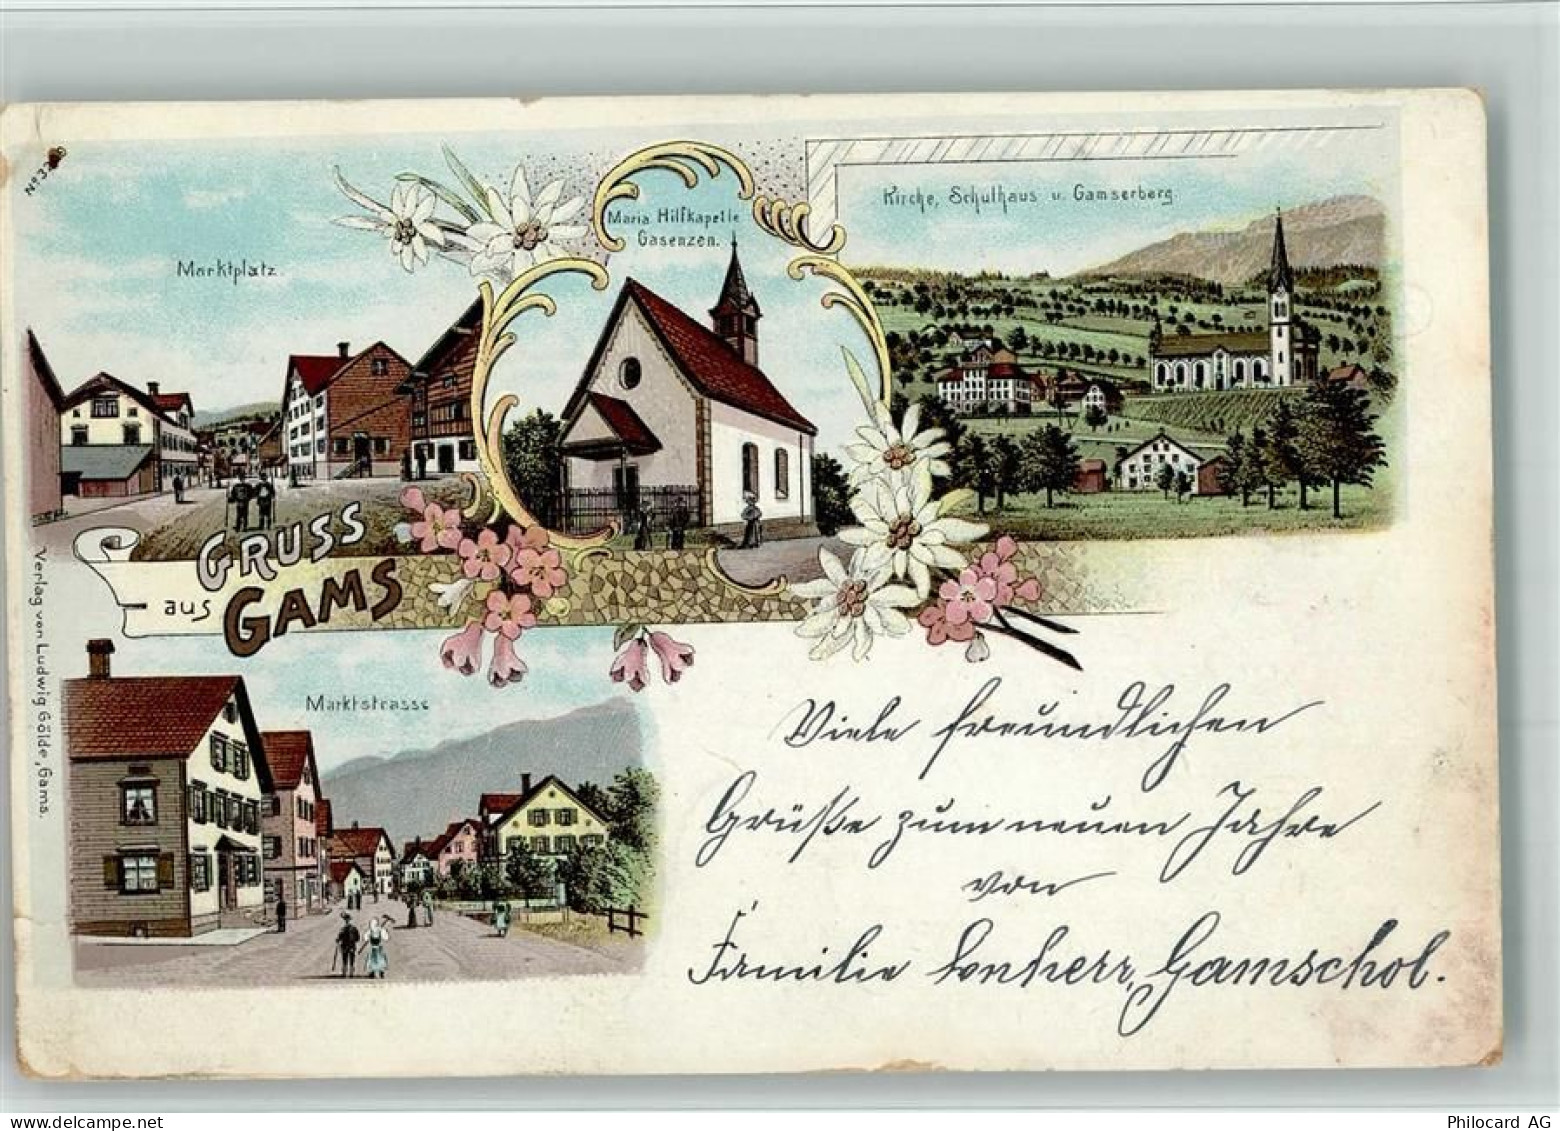 No 3230
Marktplatz.
Maria Hilfkapelle
Gasenzen.
Kirche, Schulhaus u. Gamserberg.
GRUSS
aus GAMS
Verlag von Ludwig Gölde, Gams.
Marktstrasse
Viele freundlichen
Grüße zum neuen Jahre
von
Familie Lenherr, Gamschol.
Philocard AG